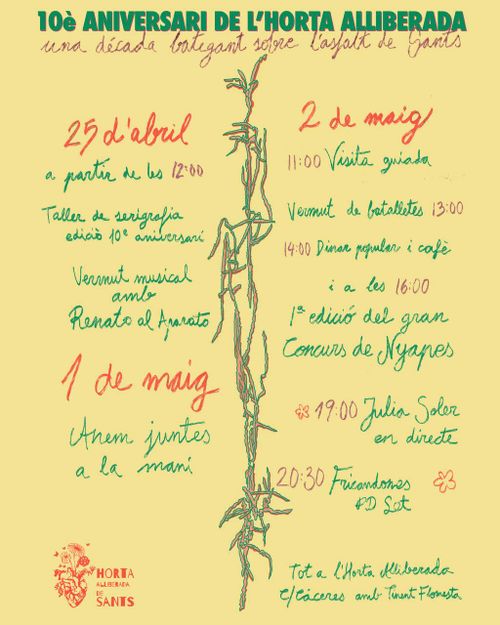 10è ANIVERSARI DE L'HORTA ALLIBERADA
una dècada bategant sobre l'asfalt de Sants
25 d'abril
a partir de les 12:00
Taller de serigrafia
edició 10è aniversari
Vermut musical
amb
Renato al Aparato
1 de maig
Anem juntes
a la mani
2 de maig
11:00 Visita guiada
Vermut de batalletes 13:00
14:00 Dinar popular i cafè
i a les 16:00
1ª edició del gran
Concurs de Nyapes
19:00 Julia Soler
en directe
20:30 Fricandones
PD Set
Tot a l'Horta Alliberada
C/Càceres amb Tinent Flomesta
HORTA
ALLIBERADA
DE
SANTS